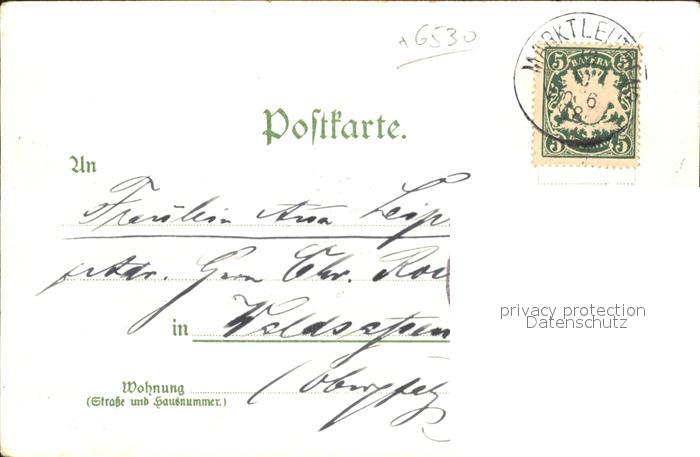 +6530
MARKTLEUT
6
5 BAYERN 5
5 5
Postkarte.
An
Fräulein Anna Leip
p. Adr. Herrn Chr. Ro
in Waldsassen
Wohnung (Oberpfalz
(Straße und Hausnummer.)
privacy protection
Datenschutz